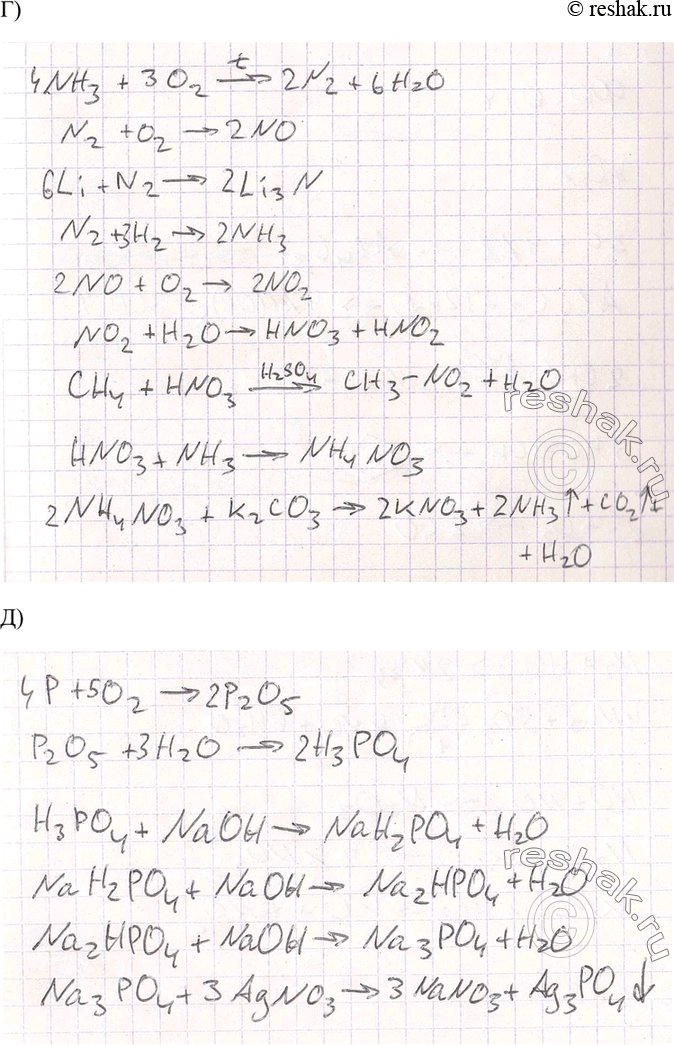 Г)
© reshak.ru
4NH₃ + 3O₂ →ᵗ 2N₂ + 6H₂O
N₂ + O₂ → 2NO
6Li + N₂ → 2Li₃N
N₂ + 3H₂ → 2NH₃
2NO + O₂ → 2NO₂
NO₂ + H₂O → HNO₃ + HNO₂
H₂SO₄
CH₄ + HNO₃ → CH₃-NO₂ + H₂O
HNO₃ + NH₃ → NH₄NO₃
2NH₄NO₃ + K₂CO₃ → 2KNO₃ + 2NH₃↑ + CO₂↑ +
+ H₂O
reshak.ru
©
Д)
4P + 5O₂ → 2P₂O₅
P₂O₅ + 3H₂O → 2H₃PO₄
H₃PO₄ + NaOH → NaH₂PO₄ + H₂O
NaH₂PO₄ + NaOH → Na₂HPO₄ + H₂O
Na₂HPO₄ + NaOH → Na₃PO₄ + H₂O
Na₃PO₄ + 3AgNO₃ → 3NaNO₃ + Ag₃PO₄↓
reshak.ru
©